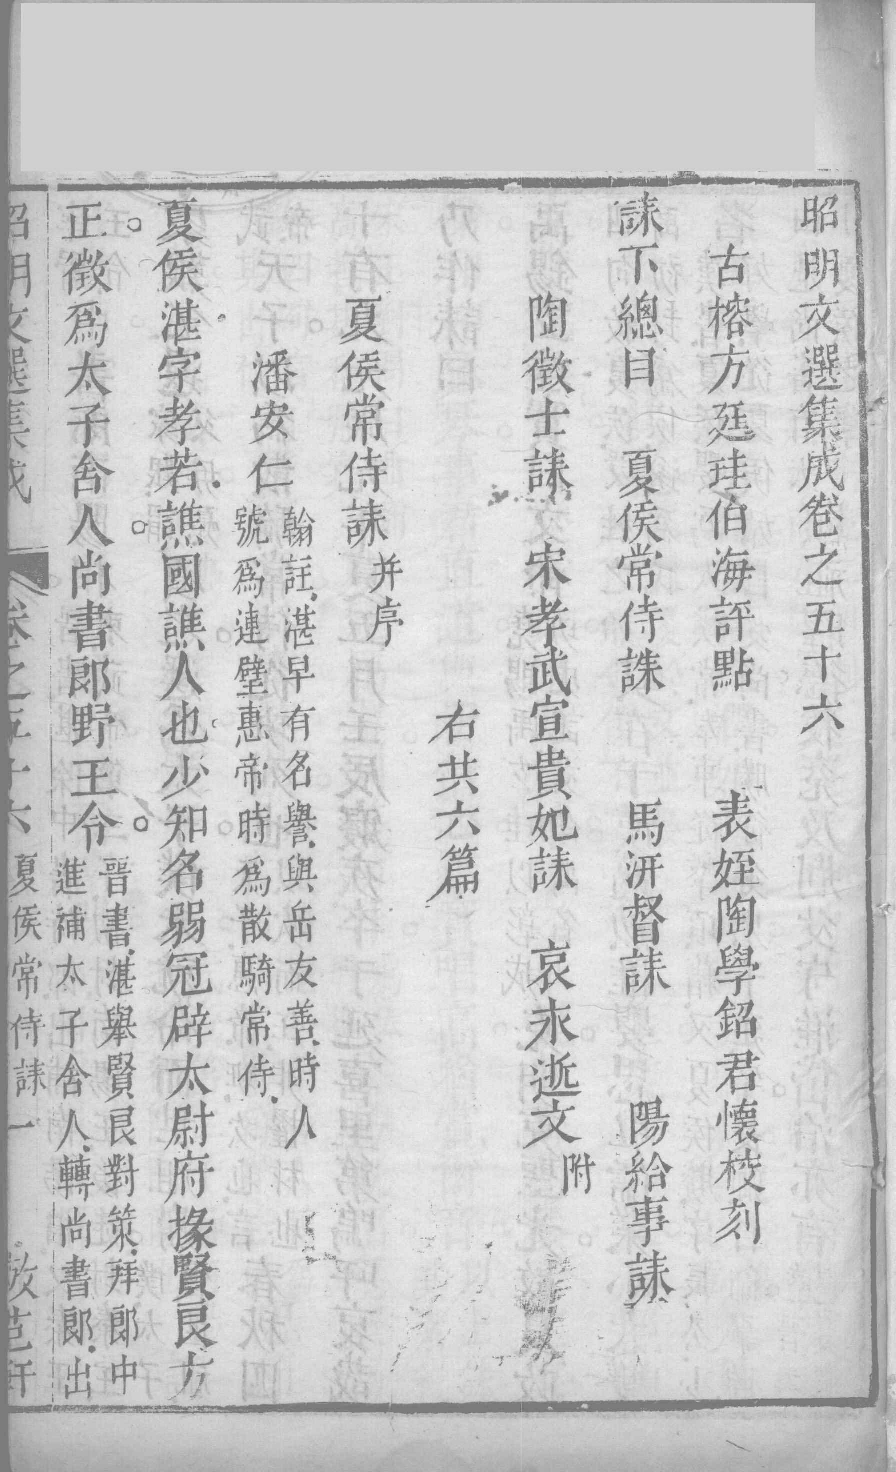 昭明文選集成卷之五十六
古榕方廷珪伯海評點 表姪陶學鉊君懷校刻
誄下總目 夏侯常侍誄 馬汧督誄 陽給事誄
陶徵士誄 宋孝武宣貴妃誄 哀永逝文附
右共六篇
夏侯常侍誄并序
潘安仁翰註湛早有名譽與岳友善時人
號爲連璧惠帝時爲散騎常侍
夏侯湛字孝若譙國譙人也少知名弱冠辟太尉府掾賢良方
正徵爲太子舍人尚書郎野王令晉書湛舉賢良對策拜郎中
進補太子舍人轉尚書郎出
昭明文選集成 卷之五十六 夏侯常侍誄 一 倣范軒